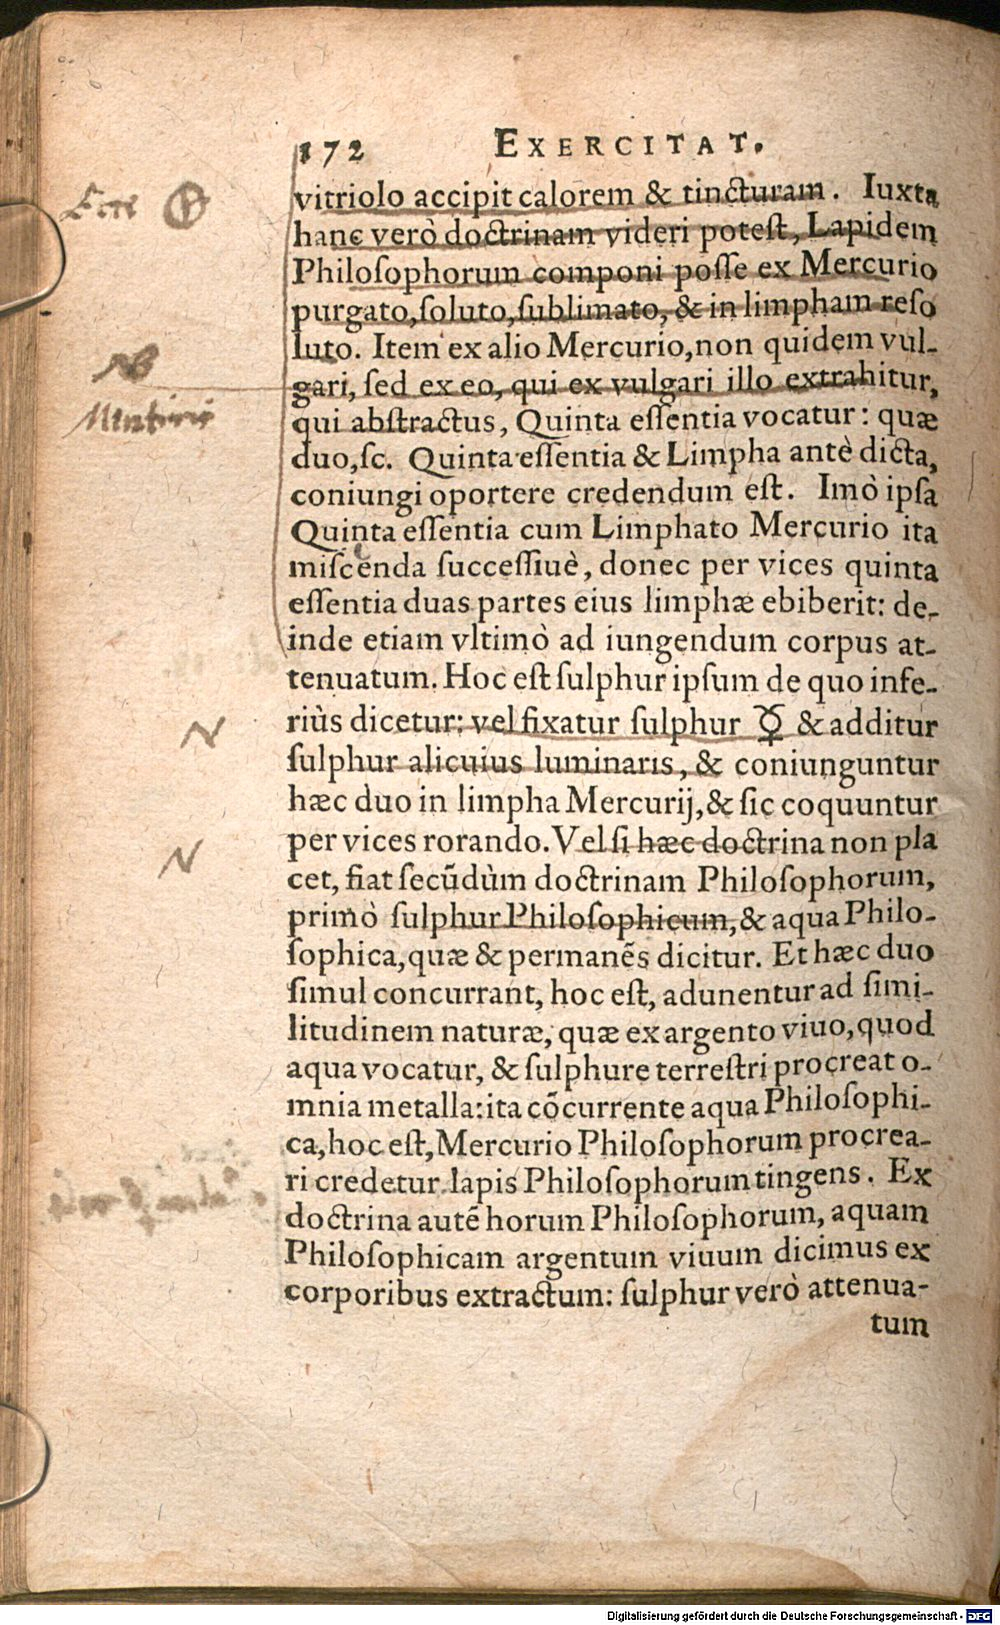 172 EXERCITAT.
vitriolo accipit calorem & tincturam. Iuxta
hanc verò doctrinam videri potest, Lapidem
Philosophorum componi posse ex Mercurio
purgato, soluto, sublimato, & in limpham reso
luto. Item ex alio Mercurio, non quidem vul-
NB
gari, sed ex eo, qui ex vulgari illo extrahitur,
qui abstractus, Quinta essentia vocatur: quæ
duo, sc. Quinta essentia & Limpha antè dicta,
coniungi oportere credendum est. Imò ipsa
Quinta essentia cum Limphato Mercurio ita
miscenda successiuè, donec per vices quinta
essentia duas partes eius limphæ ebiberit: de-
inde etiam vltimò ad iungendum corpus at-
tenuatum. Hoc est sulphur ipsum de quo infe-
N
riùs dicetur: vel fixatur sulphur ☿ & additur
sulphur alicuius luminaris, & coniunguntur
hæc duo in limpha Mercurij, & sic coquuntur
N
per vices rorando. Vel si hæc doctrina non pla
cet, fiat secũdùm doctrinam Philosophorum,
primò sulphur Philosophicum, & aqua Philo-
sophica, quæ & permanẽs dicitur. Et hæc duo
simul concurrant, hoc est, adunentur ad simi-
litudinem naturæ, quæ ex argento viuo, quod
aqua vocatur, & sulphure terrestri procreat o-
mnia metalla: ita cõcurrente aqua Philosophi-
ca, hoc est, Mercurio Philosophorum procrea-
ri credetur lapis Philosophorum tingens. Ex
doctrina autẽ horum Philosophorum, aquam
Philosophicam argentum viuum dicimus ex
corporibus extractum: sulphur verò attenua-
tum
Digitalisierung gefördert durch die Deutsche Forschungsgemeinschaft - DFG